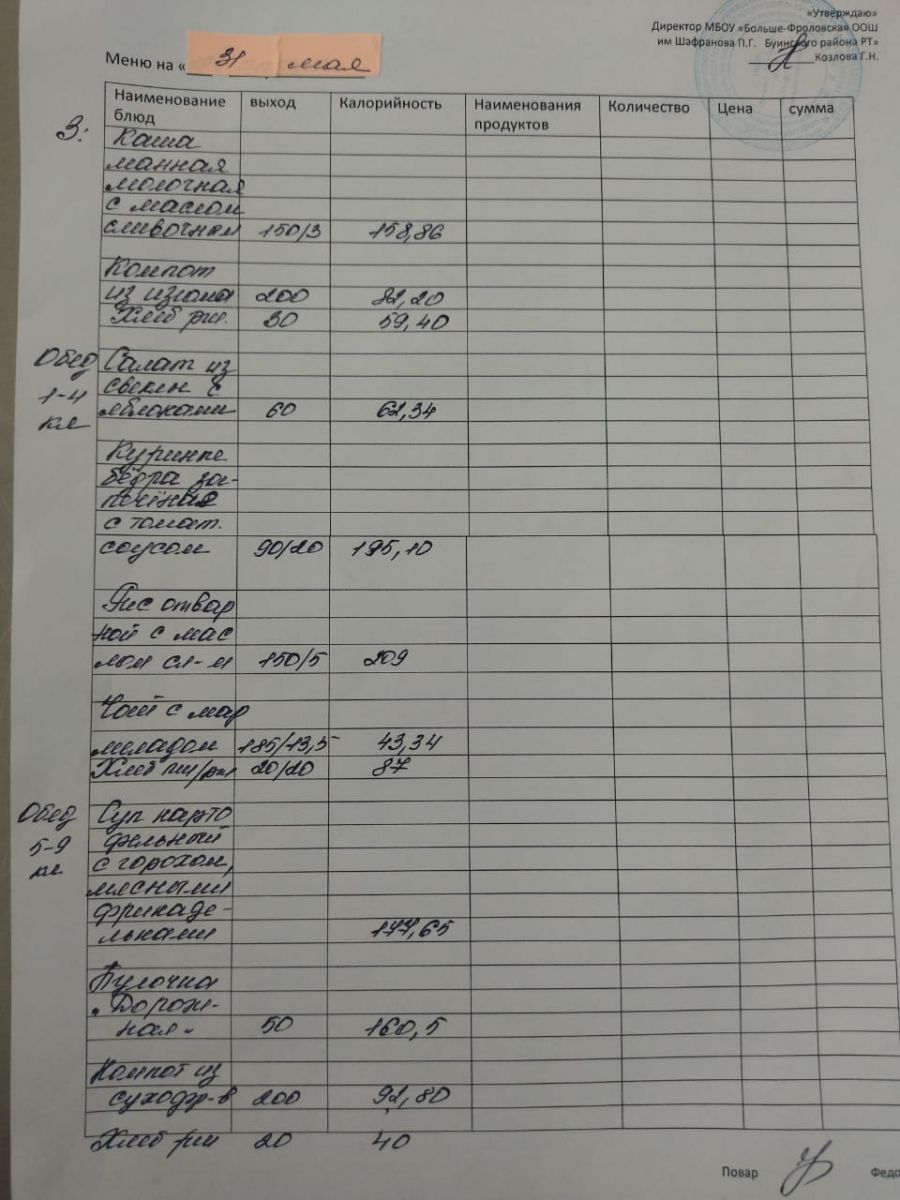 «Утверждаю»
Директор МБОУ «Больше-Фроловская ООШ
им Шафранова П.Г. Буинского района РТ»
Козлова Г.Н.
Меню на « 31 мая
Наименование блюд выход Калорийность Наименования продуктов Количество Цена сумма
З:
Каша
манная
молочная
с маслом
сливочным 150/3 158,86
Компот
из изюма 200 82,20
Хлеб рж. 30 59,40
Обед Салат из
1-4 свеклы с
кл яблоками 60 62,34
Куриные
бёдра за-
печёные
с томат.
соусом 90/20 195,10
Рис отвар
ной с мас
лом сл-м 150/5 209
Чай с мар
меладом 185/13,5 43,34
Хлеб пш/рж 20/20 87
Обед Суп карто
5-9 фельный
кл с горохом,
мясными
фрикаде-
льками 177,65
Булочка
"Дорож-
ная" 50 160,5
Компот из
сухофр-в 200 92,80
Хлеб рж 20 40
Повар Федо